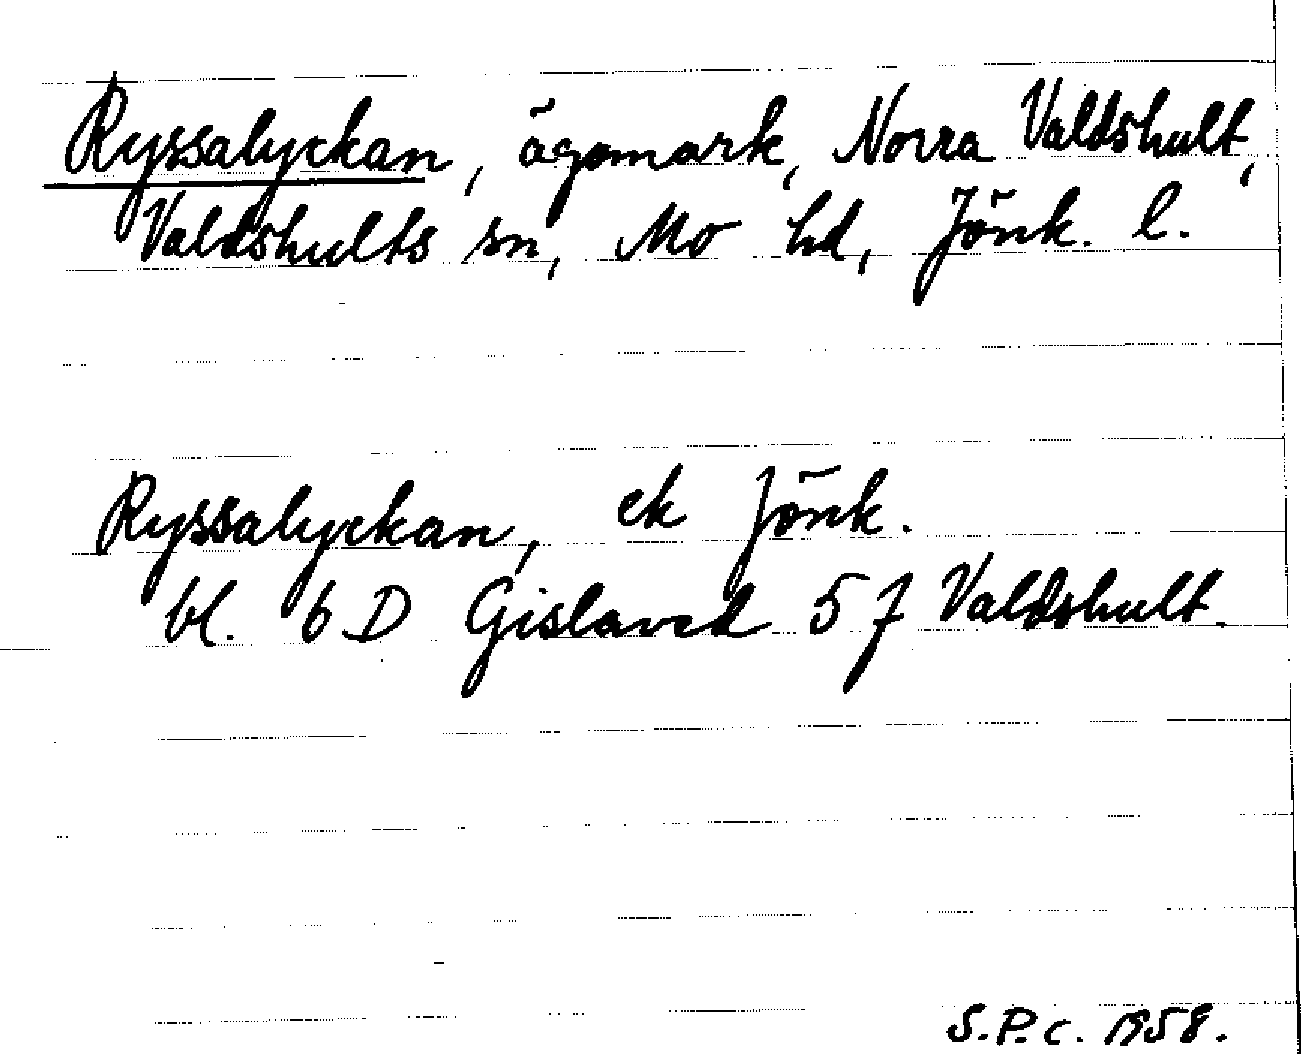 Ryssalyckan, ägomark, Norra Valdshult,
Valdshults sn, Mo hd, Jönk. l.
Ryssalyckan, ek Jönk.
bl. 6 D Gislaved 5 f Valdshult.
S.P.C. 1958.